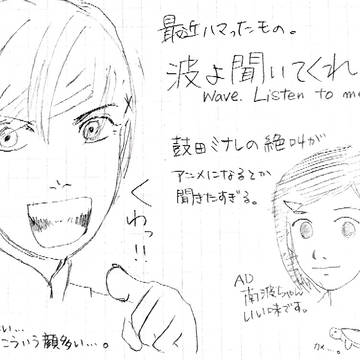 最近ハマったもの。
波よ聞いてくれ
Wave. Listen to me
鼓田ミナレの絶叫が
アニメになるとか
聞きたすぎる。
くわっ!!
AD
南波ちゃん
いい味です。
い...
こういう顔多い...。
カメ...。